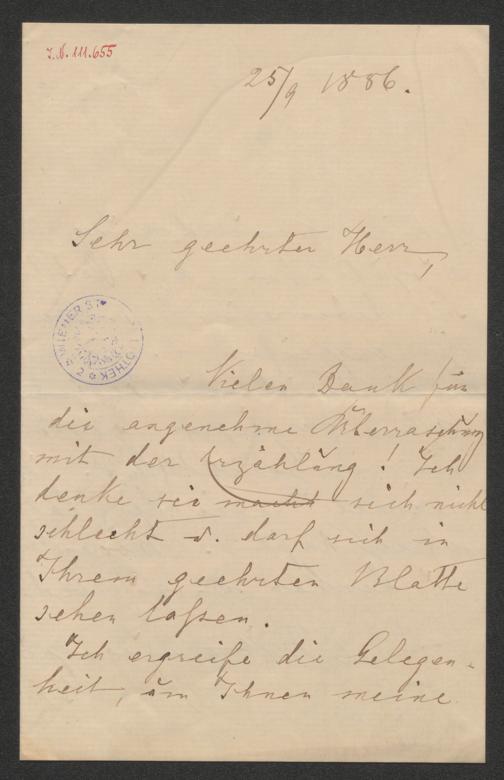 J.N. 111.655
25/9 1886.
Sehr geehrter Herr,
WIENER ST
Vielen Dank für
die angenehme Überraschung
mit der Erzählung! Ich
denke sie macht sich nicht
schlecht u. darf sich in
Ihrem geehrten Blatte
sehen lassen.
Ich ergreife die Gelegen-
heit, um Ihnen meine